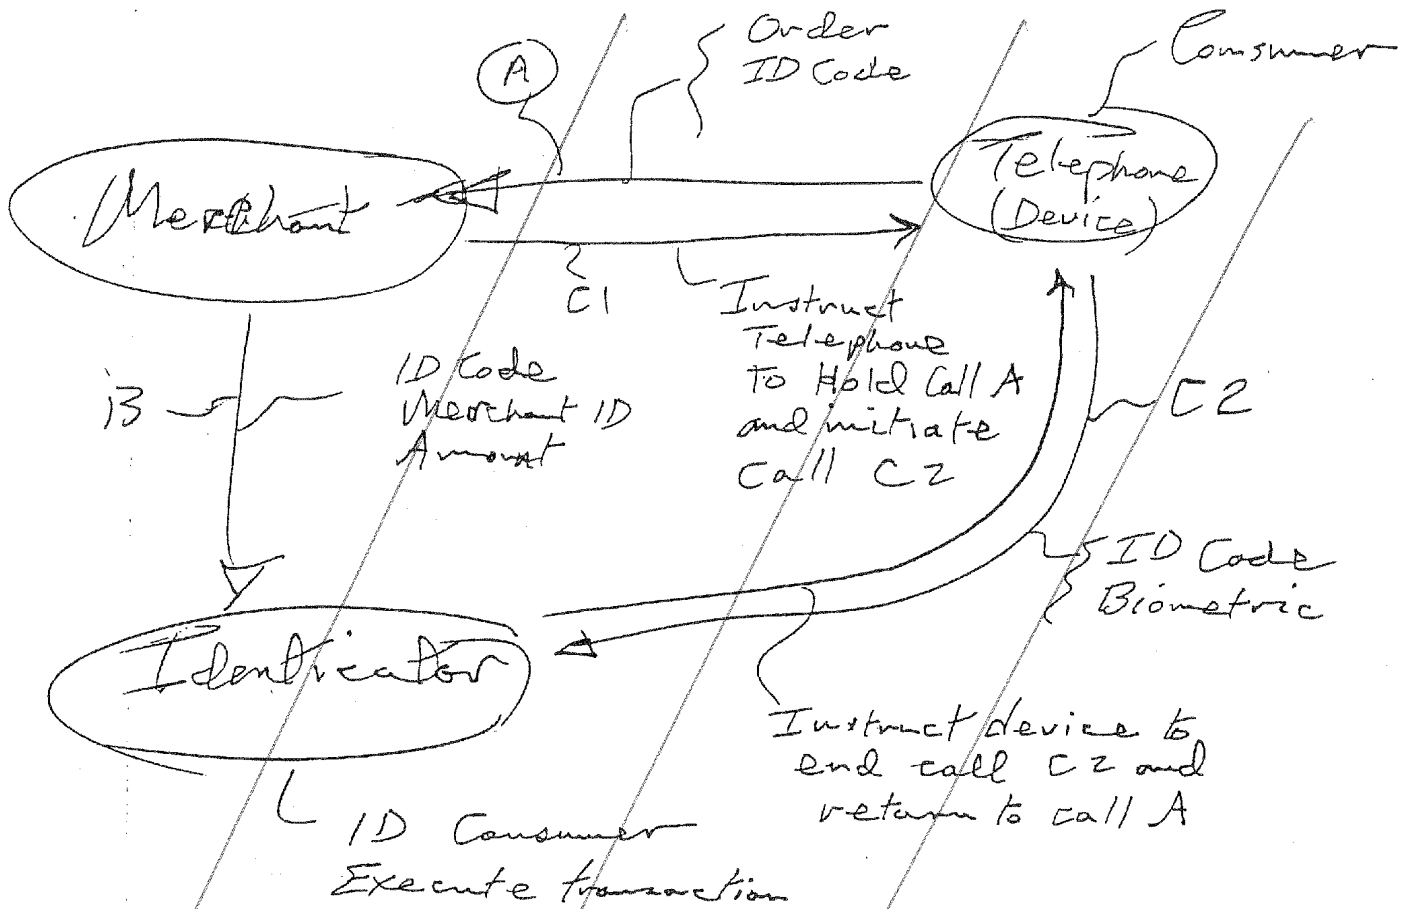 Order
ID Code
A
Consumer
Telephone
(Device)
Merchant
C1
Instruct
Telephone
to Hold Call A
and initiate
call C2
B
ID Code
Merchant ID
Amount
C2
ID Code
Biometric
Identicator
Instruct device to
end call C2 and
return to call A
ID Consumer
Execute transaction